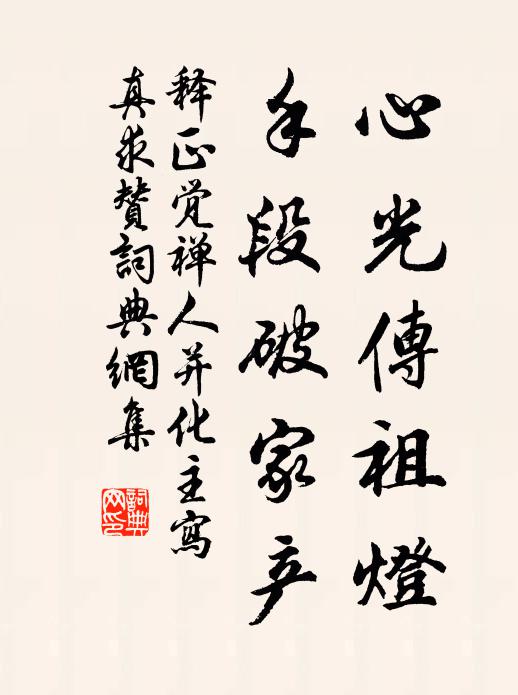 心光傳祖燈
手段破家产
释正觉禅人并化主寫
真求赞詞典網集
詞典
网印